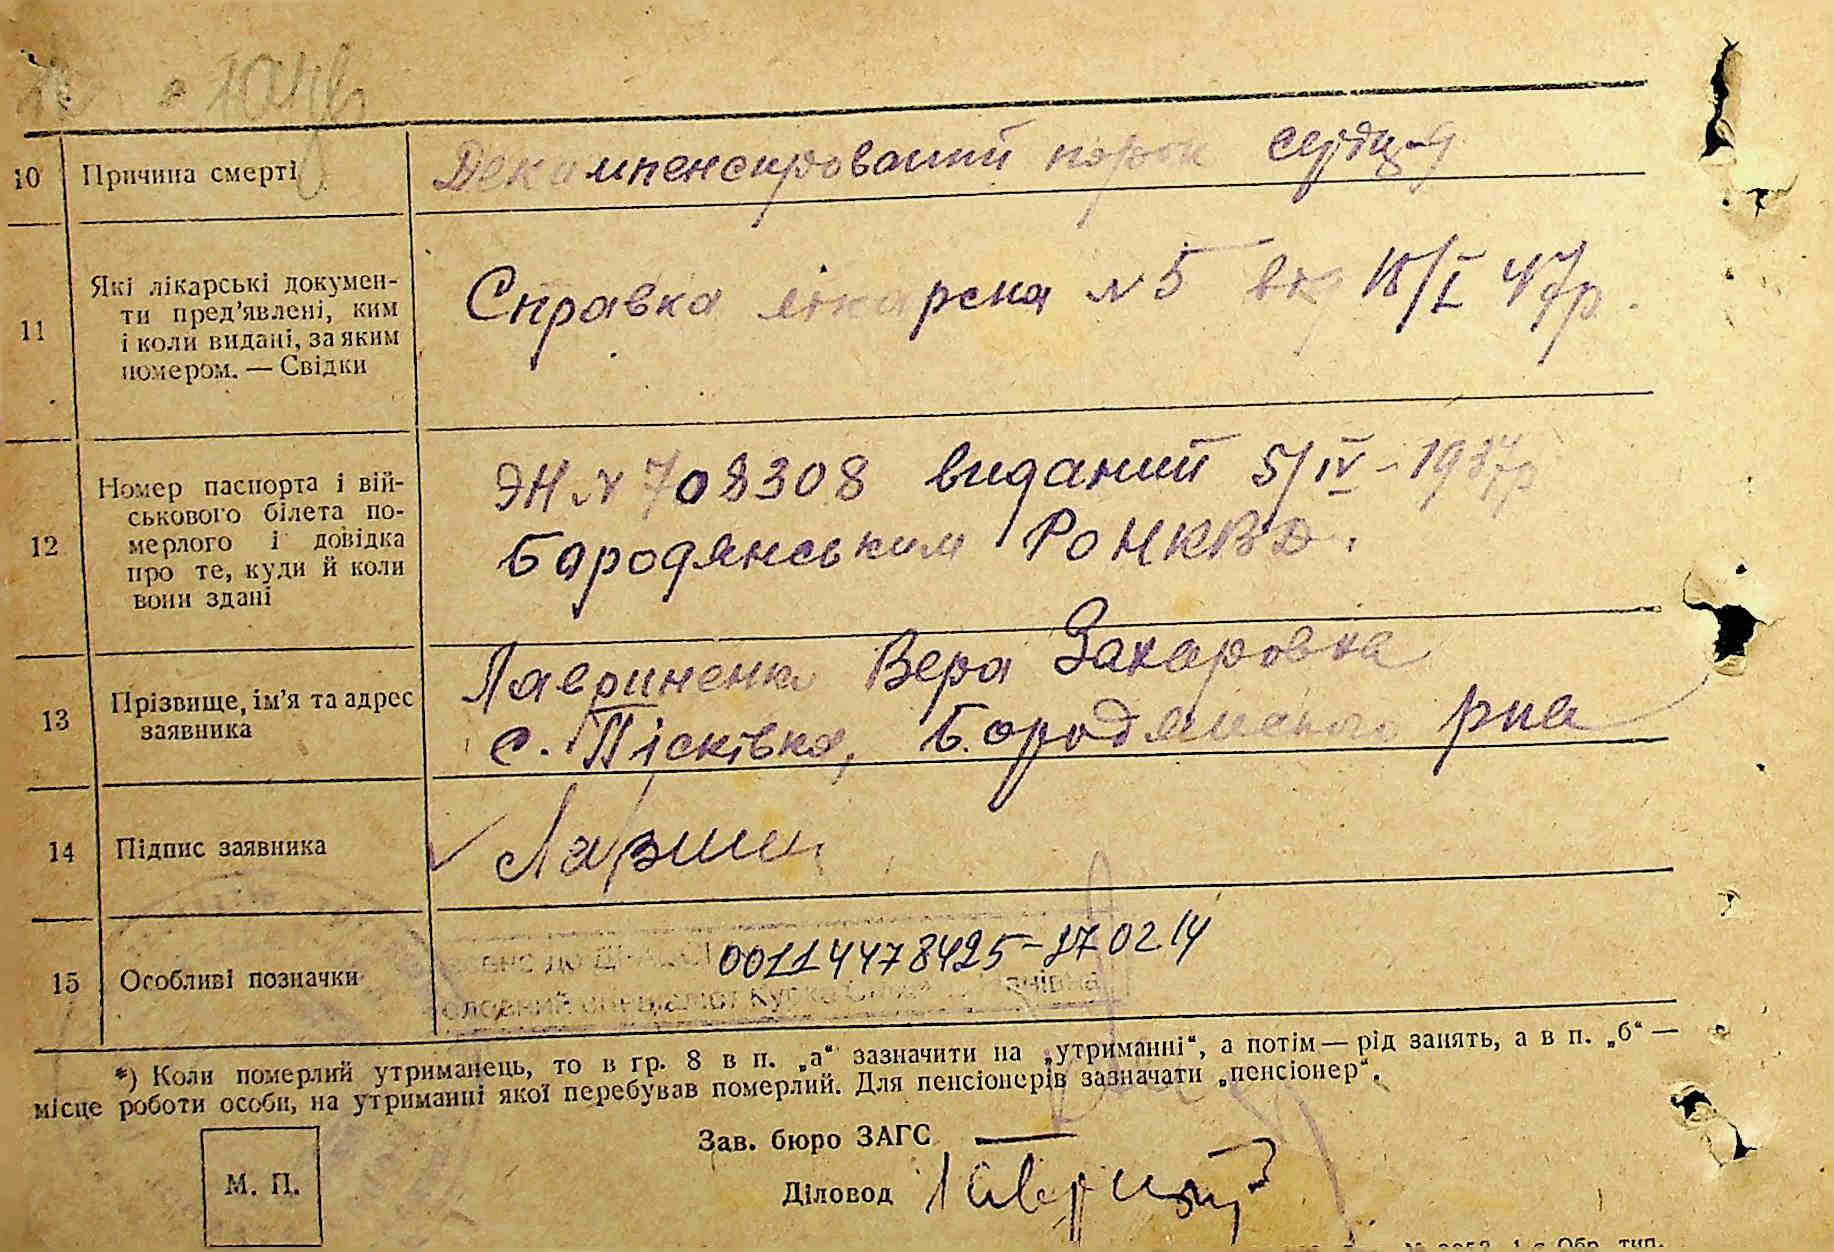 10 Причина смерті Декомпенсирований порок сердця
11 Які лікарські докумен-
ти пред'явлені, ким
і коли видані, за яким
номером. — Свідки
Справка лікарска №5 від 18/I 47р.
12 Номер паспорта і вій-
ськового білета по-
мерлого і довідка
про те, куди й коли
вони здані
ЭН № 708308 виданий 5/IV - 1937р
Бородянським РО НКВД.
13 Прізвище, ім'я та адрес
заявника
Лавриненко Вера Захаровна
с. Пісківка, Бородянського рна
14 Підпис заявника
15 Особливі позначки 00114478425-27 02 14
*) Коли померлий утриманець, то в гр. 8 в п. „а“ зазначити на „утриманні“, а потім — рід занять, а в п. „б“ —
місце роботи особи, на утриманні якої перебував померлий. Для пенсіонерів зазначати „пенсіонер“.
Зав. бюро ЗАГС —
М. П.
Діловод